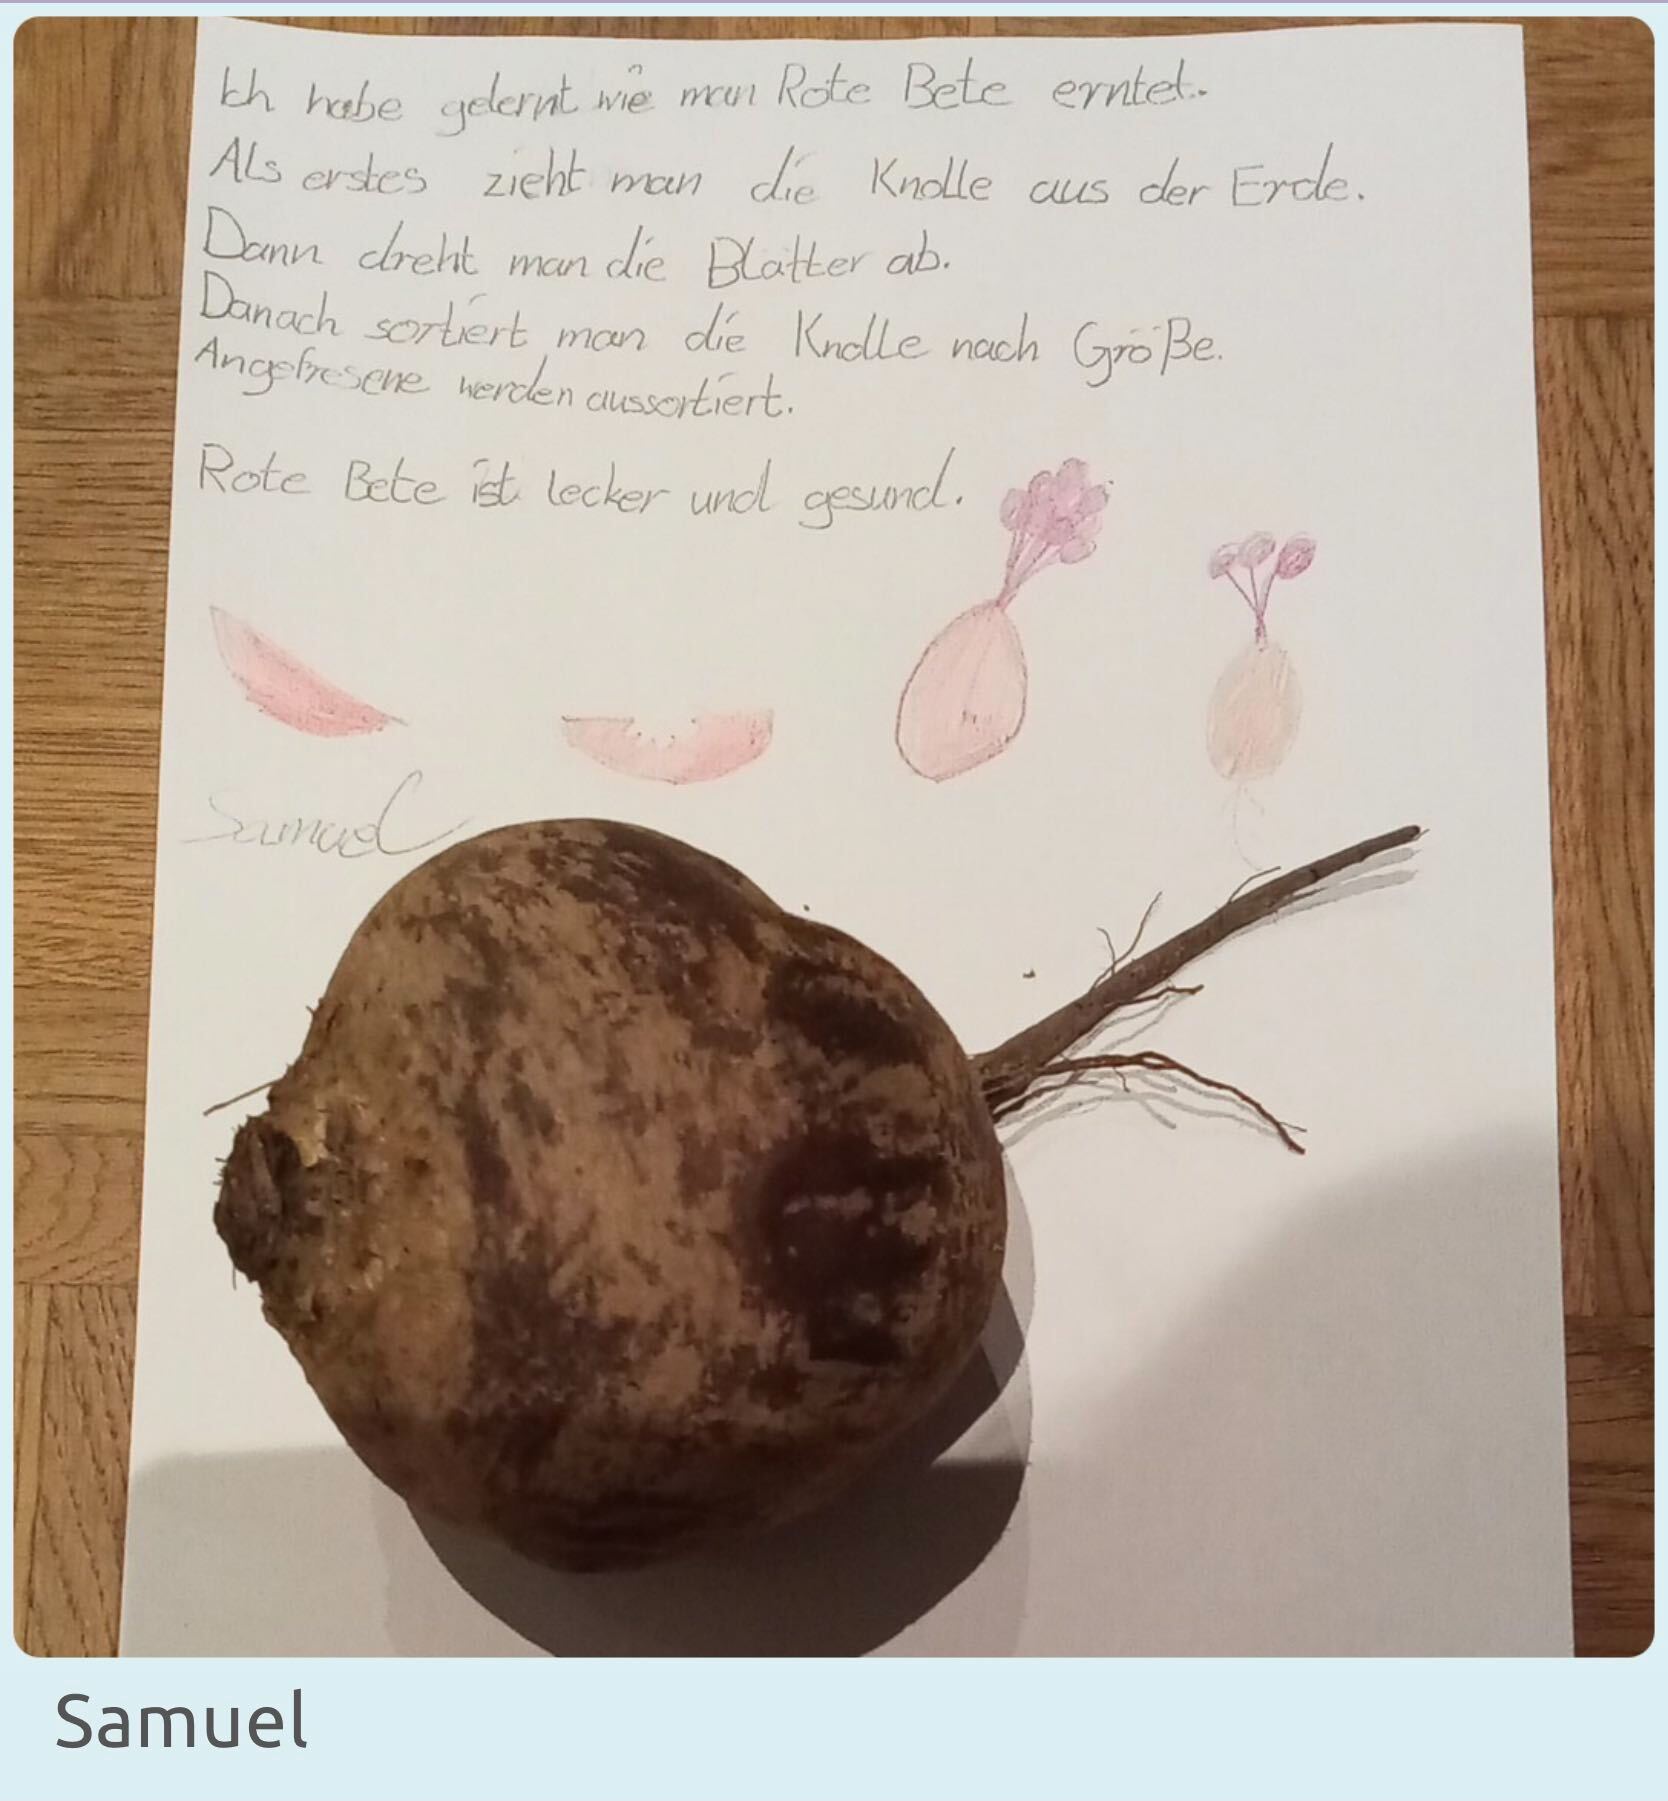 Ich habe gelernt wie man Rote Bete erntet.
Als erstes zieht man die Knolle aus der Erde.
Dann dreht man die Blätter ab.
Danach sortiert man die Knolle nach Größe.
Angefresene werden aussortiert.
Rote Bete ist lecker und gesund.
Samuel
Samuel